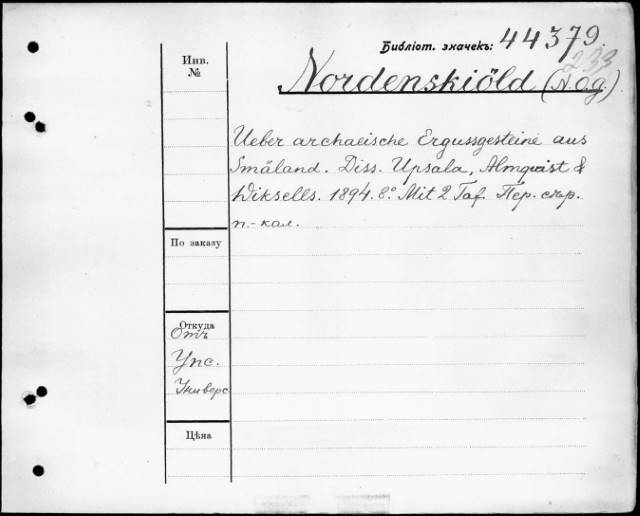 Библіот. значекъ: 44379.
233
Инв.
№
Nordenskiöld (N. O. G.)
Ueber archaeische Ergussgesteine aus
Småland. Diss. Upsala, Almqvist &
Wiksells. 1894. 8º. Mit 2 Taf. Пер. стр.
п.-кал.
По заказу
Откуда
Отъ
Упс.
Универс
Цѣна